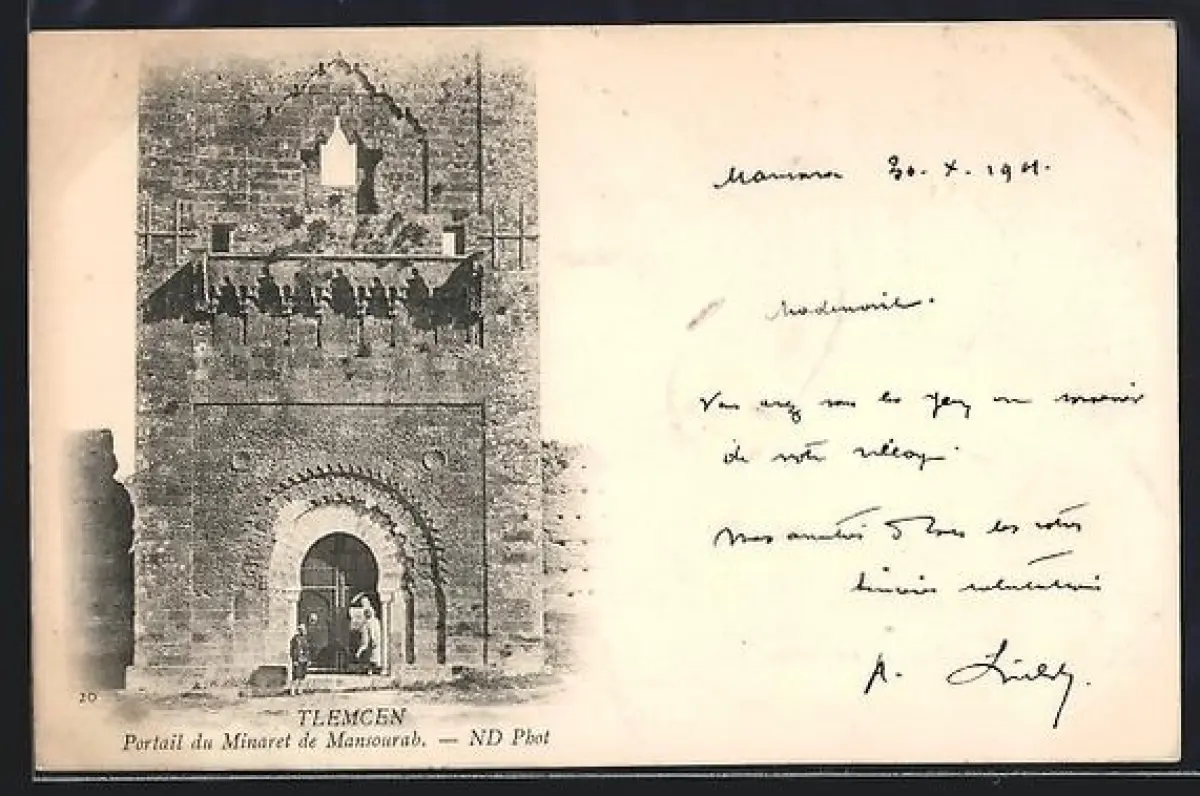 20
TLEMCEN
Portail du Minaret de Mansourah. — ND Phot
30. X. 1901.
Mademoiselle.
Vous avez sous les yeux un souvenir
de votre village.
Mes amitiés à tous les votres
Sincères salutations
A.